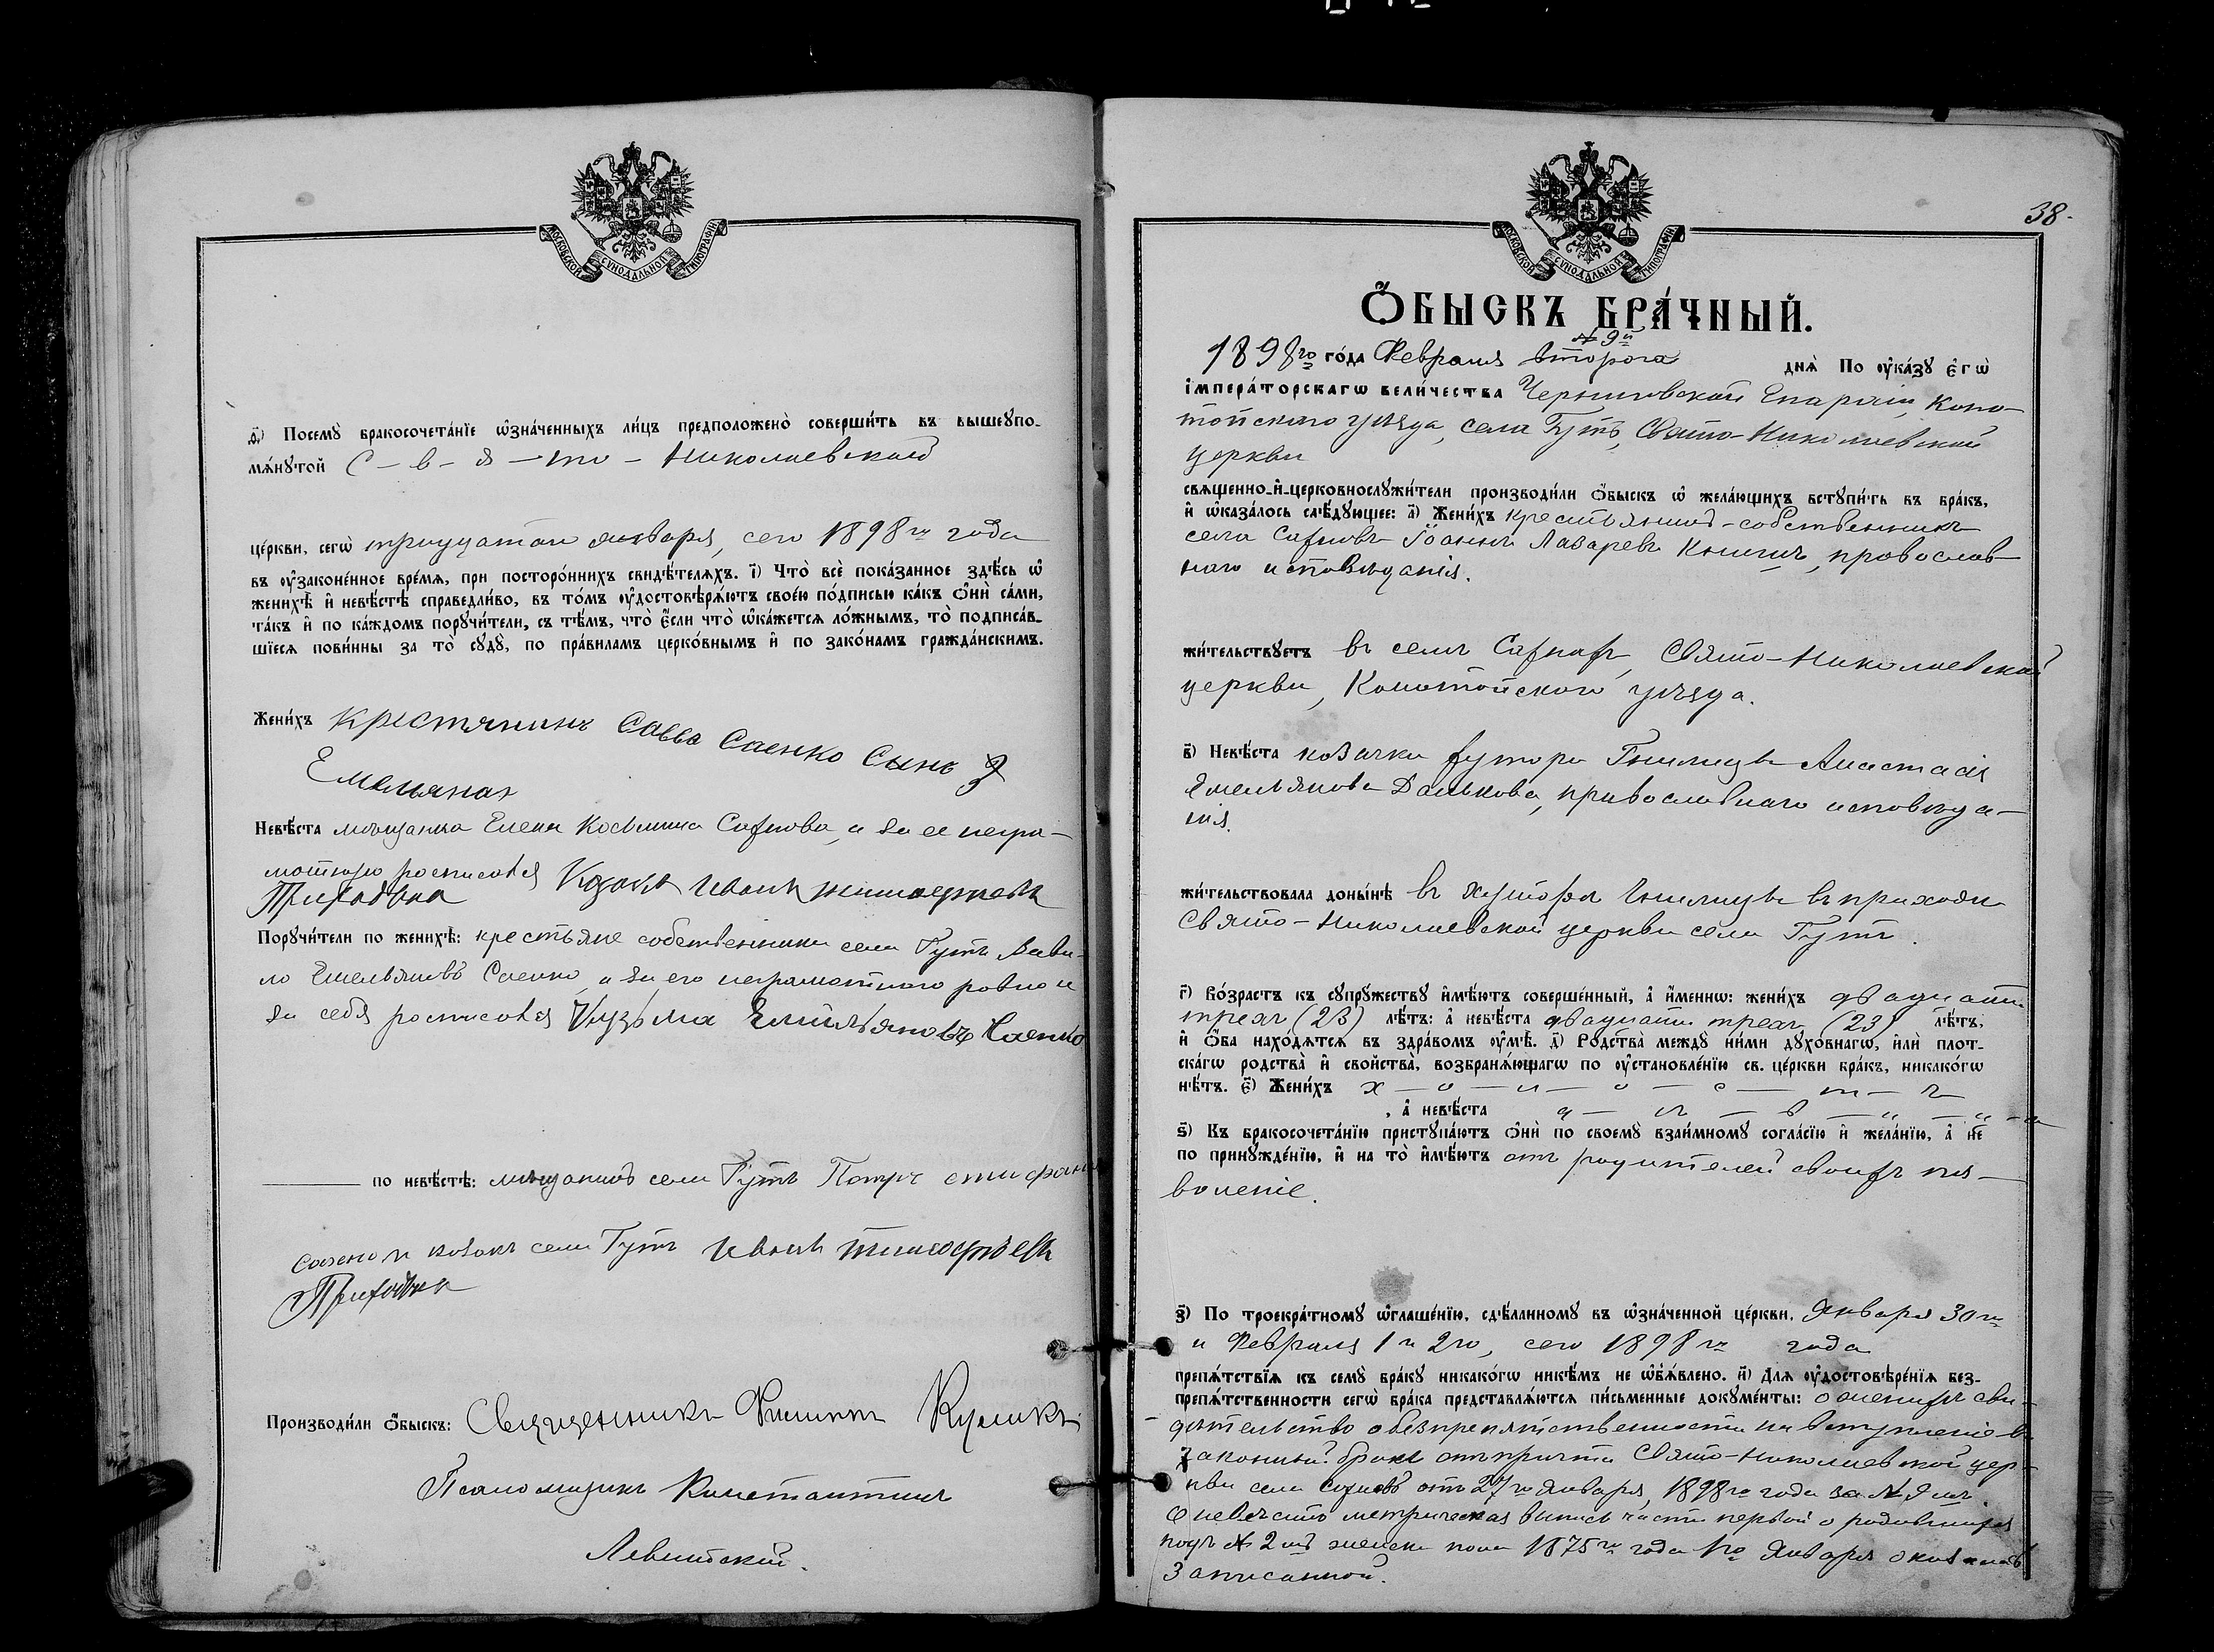 МОСКОВСКОЙ СѴНОДАЛЬНОЙ ТИПОГРАФІИ
д҃) Посемꙋ̀ бракосочета́нїе ѡ҆зна́ченныхъ ли́цъ предположено̀ соверши́ть въ вышеꙋпо-
мѧ́нꙋтой С-в-я-то-Николаевской
це́ркви, сегѡ̀ тридцатаго января, сего 1898го года
въ ᲂу҆законе́нное вре́мѧ, при посторо́ннихъ свидѣ́телѧхъ. і҃) Что̀ всѐ пока́занное здѣ́сь ѡ҆
женихѣ̀ и҆ невѣ́стѣ справедли́во, въ то́мъ ᲂу҆достовѣрѧ́ютъ свое́ю по́дписью ка́къ ѻ҆нѝ са́ми,
та́къ и҆ по ка́ждомъ порꙋчи́тели, съ тѣ́мъ, что̀ є҆́сли что̀ ѡ҆ка́жетсѧ ло́жнымъ, то̀ подписа́в-
шїесѧ пови́нны за то̀ сꙋдꙋ̀, по пра́виламъ церко́внымъ и҆ по зако́намъ гражда́нскимъ.
Жени́хъ Крестянинъ Савва Саенко Сынъ
Емельяна
Невѣ́ста мѣщанка Елена Косьмина Сахнова, а за ее негра-
мотную росписался Козакъ Иванъ
Приходька
Порꙋчи́тели по женихѣ̀: крестьяне собственники села Гутъ Вави-
ло Емельяновъ Саенко, а за его неграмотного ровно и
за себя росписался Кузьма Емельяновъ Саенко
по невѣ́стѣ: мѣщанинъ села Гутъ Петръ
и козакъ села Гутъ Иванъ
Приходька
Производи́ли ѻ҆́быскъ: Священникъ Филиппъ Куликъ
Псаломщикъ Константинъ
Левитскій.
38.
МОСКОВСКОЙ СѴНОДАЛЬНОЙ ТИПОГРАФІИ
Ѻ҆́БЫСКЪ БРА́ЧНЫЙ.
№ 9й
1898го го́да Февраля второго днѧ̀ По ᲂу҆ка́зꙋ є҆гѡ̀
і҆мпера́торскагѡ вели́чества Черниговской Епархіи, Коно-
топского уѣзда, села Гутъ, Свято-Николаевской
церкви
свѧщенно-и҆-церковнослꙋжи́тели производи́ли ѻ҆́быскъ ѡ҆ жела́ющихъ встꙋпи́ть въ бра́къ,
и҆ ѡ҆каза́лось слѣ́дꙋющее: а҃) Жени́хъ крестьянинъ-собственникъ
села Сахновъ Іоаннъ Лазаревъ Книгинъ, православ-
наго исповѣданія.
жи́тельствꙋетъ въ селѣ Сахнахъ, Свято-Николаевской
церкви, Конотопского уѣзда.
в҃) Невѣ́ста козачка хутора Гнилицы Анастасія
Емельянова Данькова, православнаго исповѣда-
нія.
жи́тельствовала доны́нѣ въ хуторѣ Гнилицы въ приходѣ
Свято-Николаевской церкви села Гутъ.
г҃) Во́зрастъ къ сꙋпрꙋ́жествꙋ и҆мѣ́ютъ соверше́нный, а҆̀ и҆́меннѡ: жени́хъ двадцати
трехъ (23) лѣ́тъ: а҆̀ невѣ́ста двадцати трехъ (23) лѣ́тъ,
и҆ ѻ҆́ба нахо́дѧтсѧ въ здра́вомъ ᲂу҆мѣ̀. д҃) Родства̀ междꙋ̀ ни́ми дꙋхо́внагѡ, и҆лѝ плот-
ска́гѡ родства̀ и҆ свойства̀, возбранѧ́ющагѡ по ᲂу҆становле́нїю св. це́ркви бра́къ, никако́гѡ
нѣ́тъ. є҃) Жени́хъ х-о-л-о-с-т-ъ
, а҆̀ невѣ́ста д-ѣ-в-и-ц-а
ѕ҃) Къ бракосочета́нїю пристꙋпа́ютъ ѻ҆нѝ по своемꙋ̀ взаи́мномꙋ согла́сїю и҆ жела́нїю, а҆̀ не
по принꙋжде́нїю, и҆ на то̀ и҆мѣ́ютъ отъ родителей своихъ поз-
воленіе.
з҃) По троекра́тномꙋ ѡ҆глаше́нїю, сдѣ́ланномꙋ въ ѡ҆зна́ченной це́ркви, Января 30го
и Февраля 1 и 2го, сего 1898го года
препѧ́тствїѧ къ семꙋ̀ бра́кꙋ никако́гѡ никѣ́мъ не ѡ҆б̾ѧ́влено. и҃) Длѧ̀ ᲂу҆достовѣре́нїѧ без-
препѧ́тственности сегѡ̀ бра́ка представлѧ́ютсѧ пи́сьменные докꙋме́нты: о женихѣ сви-
дѣтельство о безпрепятственности на вступленіе въ
законный бракъ отъ причта Свято-Николаевской цер-
кви села Сахновъ отъ 27го Января, 1898го года за №
О невѣстѣ метрическая выпись части первой о родившихся
подъ № 2мъ женска пола 1875го года 1го Января
Записанной.